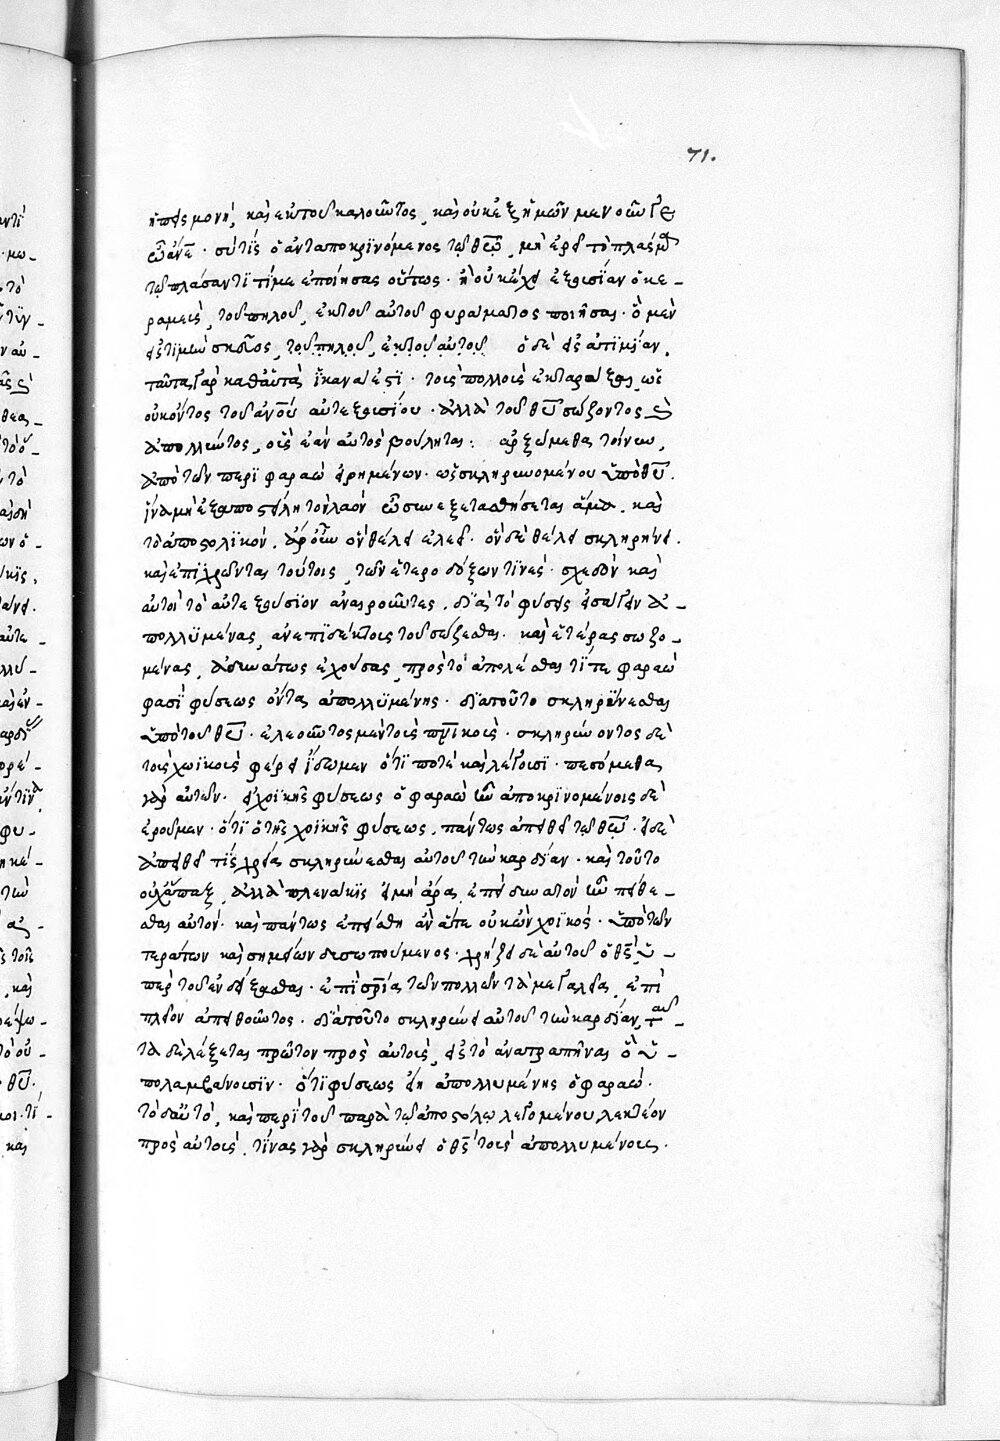 71.
ἡ πεισμονὴ, καὶ ἐκ τοῦ καλοῦντος, καὶ οὐκ ἐξ ἡμῶν μενοῦνγε
ὦ ἄνε. σὺ τίς ὁ ἀνταποκρινόμενος τῷ θῶ, μὴ ἐρεῖ τὸ πλάσμα
τῷ πλάσαντι τί με ἐποίησας οὕτως. ἢ οὐκ ἔχει ἐξουσίαν ὁ κε-
ραμεὺς, τοῦ πηλοῦ, ἐκ τοῦ αὐτοῦ φυράματος ποιῆσαι. ὃ μὲν
εἰς τιμὴν σκεῦος, τοῦ πηλοῦ, ἐκ τοῦ αὐτοῦ ὃ δὲ εἰς ἀτιμίαν,
ταῦτα γὰρ καθ' αὑτὰ ἱκανά ἐστι. τοὺς πολλοὺς ἐκταράξαι, ὡς
οὐκ ὄντος τοῦ ἀνου αὐτεξουσίου. ἀλλὰ τοῦ θυ σώζοντος καὶ
ἀπολλύντος, οὓς ἐὰν αὐτὸς βούληται: ἀρξώμεθα τοίνυν,
ἀπὸ τῶν περὶ φαραὼ εἰρημένων. ὡς σκληρυνομένου ὑπὸ θυ.
ἵνα μὴ ἐξαποστείλῃ τὸν λαόν ᾧ συνεξετασθήσεται ἅμα, καὶ
τὸ ἀποστολικόν. ἄρ' οὖν ὃν θέλει ἐλεεῖ. ὃν δὲ θέλει σκληρύνει.
καὶ ἐπιχρῶνται τούτοις, τῶν ἑτεροδόξων τινές. σχεδὸν καὶ
αὐτοὶ τὸ αὐτεξούσιον ἀναιροῦντες. διὰ τὸ φύσεις εἰσάγειν ἀ-
πολλυμένας, ἀνεπιδέκτους τοῦ σώζεσθαι. καὶ ἑτέρας σωζο-
μένας, ἀδυνάτως ἐχούσας, πρὸς τὸ ἀπολέσθαι τί τε φαραὼ
φασὶ φύσεως ὄντα ἀπολλυμένης. διὰ τοῦτο σκληρύνεσθαι
ὑπὸ τοῦ θυ. ἐλεοῦντος μὲν τοὺς πνικοὺς. σκληρύνοντος δὲ
τοὺς χωικοὺς φέρε ἴδωμεν ὅτι ποτὲ καὶ λέγουσι. πεσόμεθα
γὰρ αὐτῶν. εἰ χοικῆς φύσεως ὁ φαραὼ ἦν ἀποκρινομένοις δὲ
ἐροῦμεν. ὅτι ὁ τῆς χοικῆς φύσεως, πάντως ἀπειθεῖ τῷ θῶ. εἰ δὲ
ἀπειθεῖ τίς χρεία σκληρύνεσθαι αὐτοῦ τὴν καρδίαν. καὶ τοῦτο
οὐχ ἅπαξ, ἀλλὰ πλεονάκις εἰ μὴ ἄρα, ἐπεὶ δυνατὸν ἦν πείθε-
σθαι αὐτόν. καὶ πάντως ἐπείσθη ἂν ἅτε οὐκ ὢν χοικός. ὑπὸ τῶν
τεράτων καὶ σημείων δυσωπούμενος. χρῄζει δὲ αὐτοῦ ὁ θς ὑ-
πὲρ τοῦ ἐνδείξασθαι. ἐπὶ σρία τῶν πολλῶν τὰ μεγαλεῖα, ἐπὶ
πλεῖον ἀπειθοῦντος. διὰ τοῦτο σκληρύνει αὐτοῦ τὴν καρδίαν, ταῦ-
τα δὲ λέξεται πρῶτον πρὸς αὐτοὺς, εἰς τὸ ἀνατραπῆναι ὃ ὑ-
πολαμβάνουσιν. ὅτι φύσεως ἦν ἀπολλυμένης ὁ φαραώ.
τὸ δ' αὐτὸ, καὶ περὶ τοῦ παρὰ τῷ ἀποστόλῳ λεγομένου λεκτέον
πρὸς αὐτούς, τίνας γὰρ σκληρύνει ὁ θς τοὺς ἀπολλυμένους.